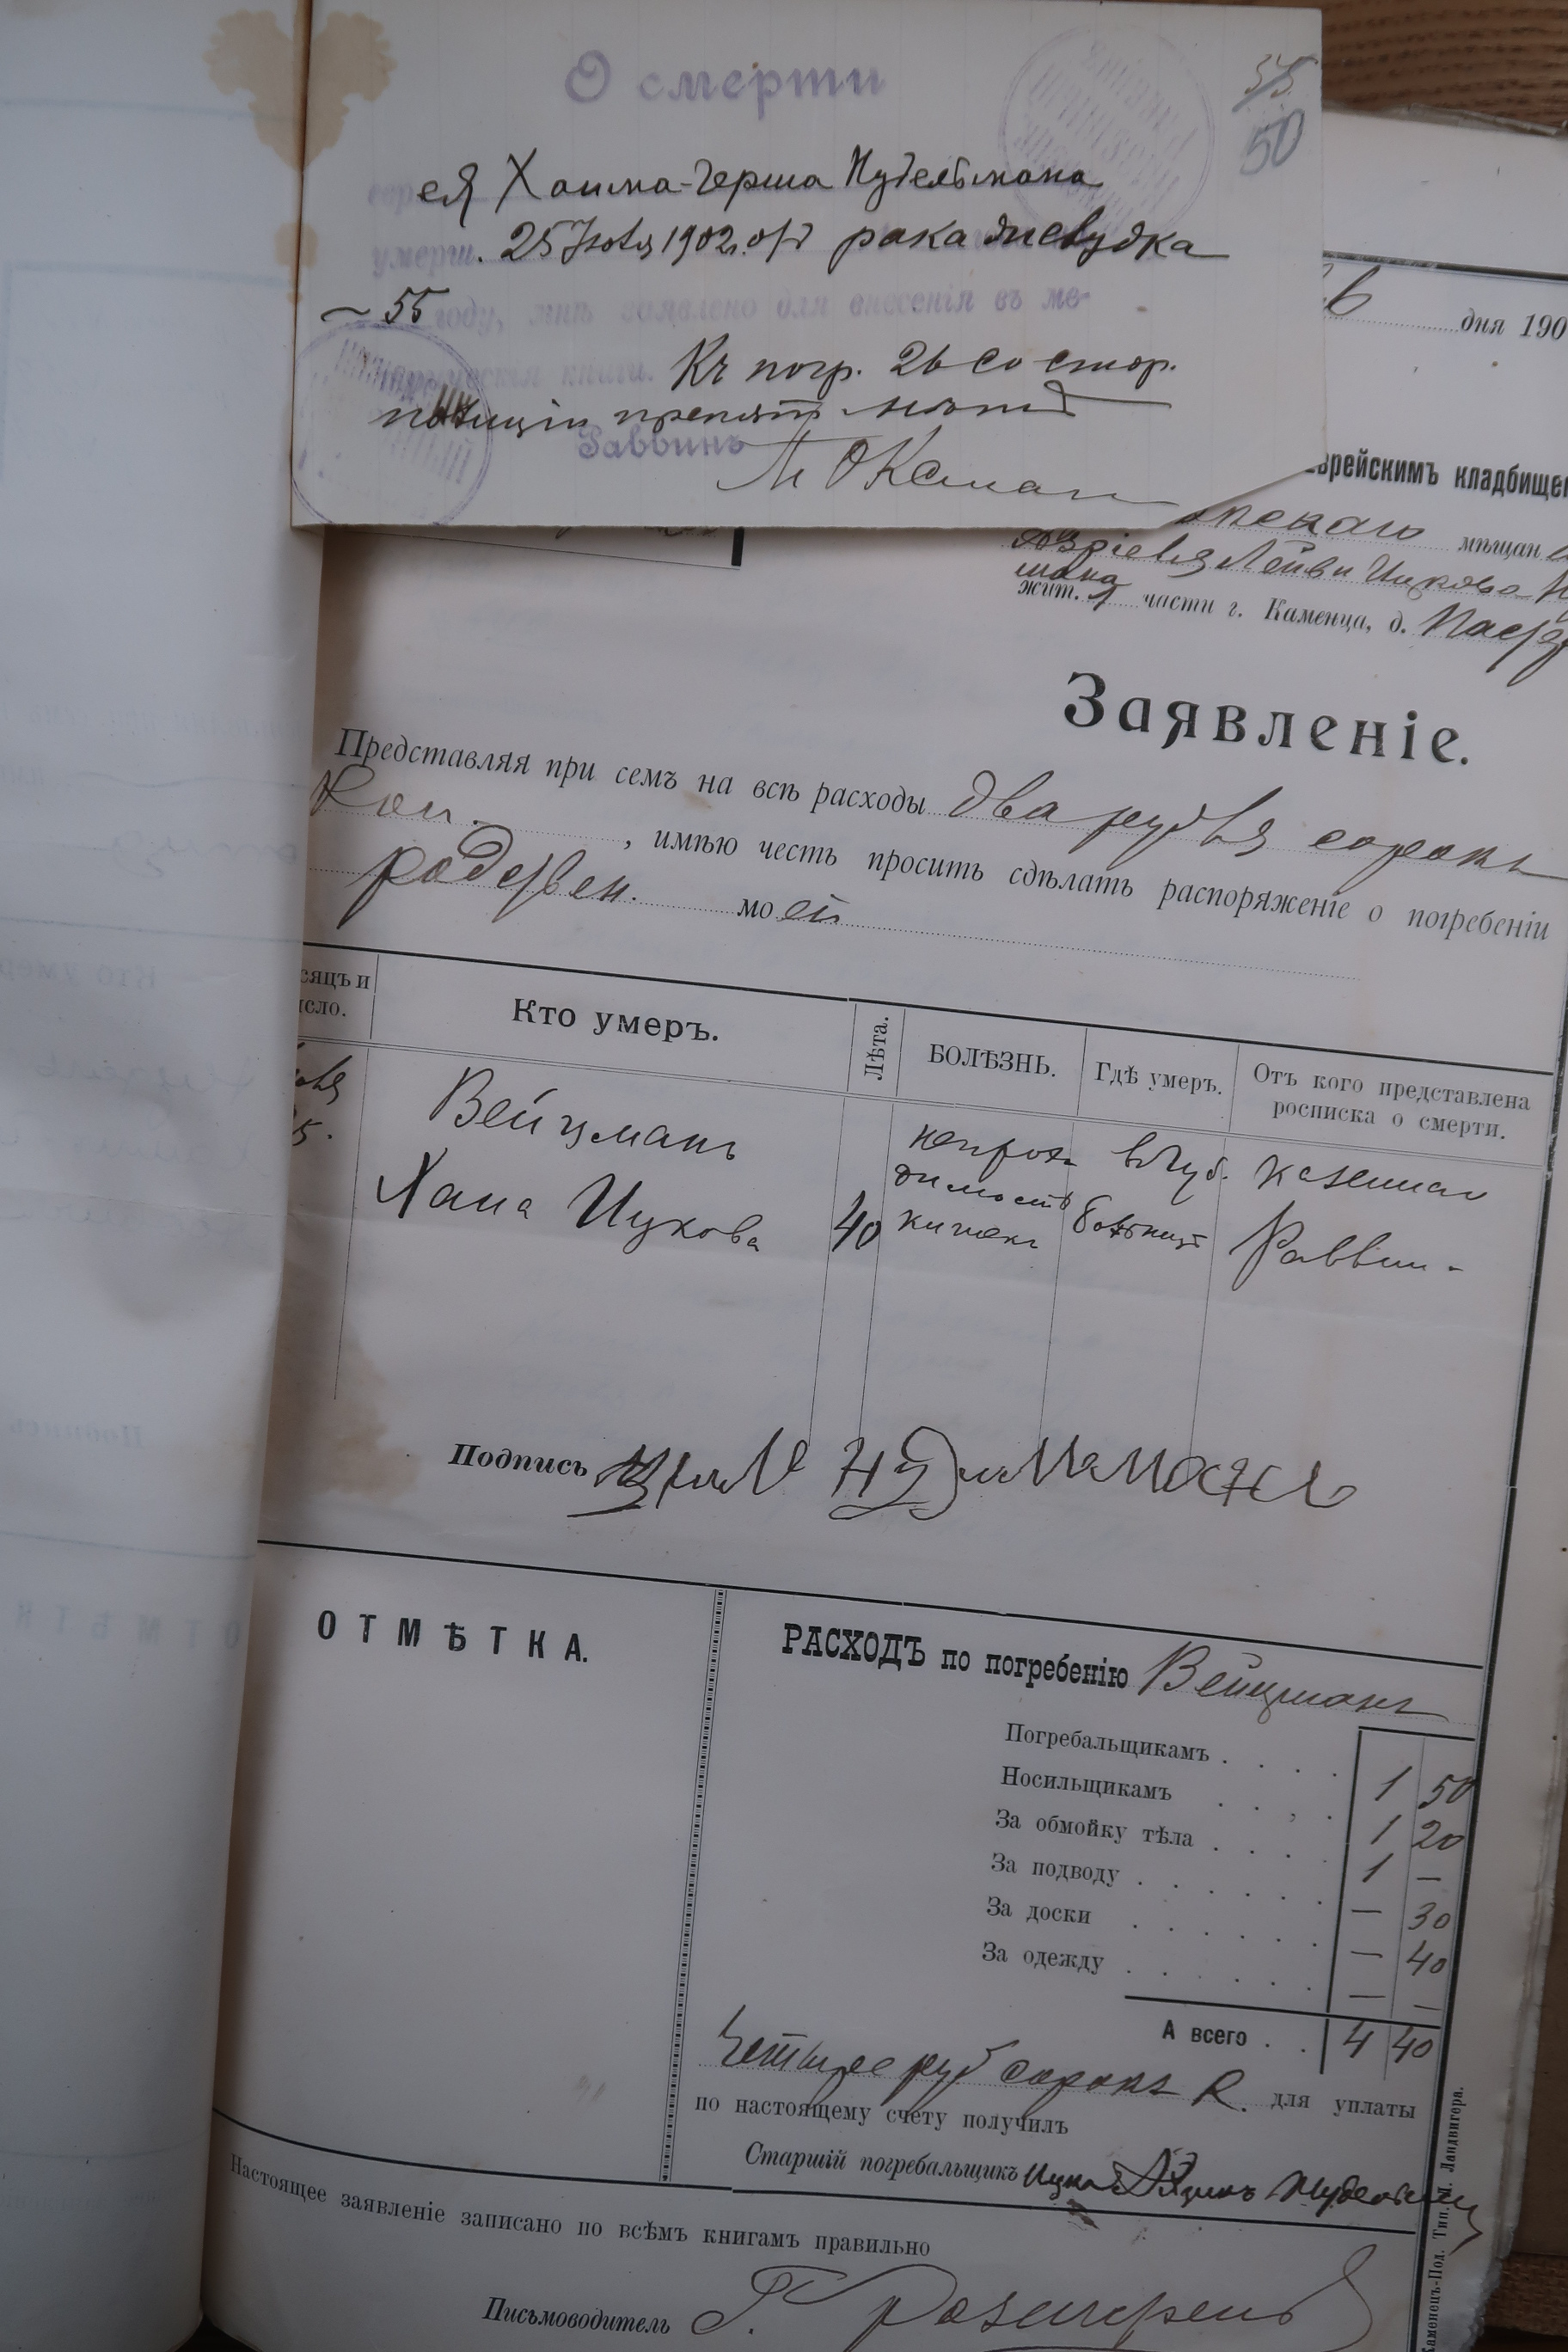 О смерти
50
ея Хаима-Герша Нудельмана
умерш. 25 Ноя 1902 от рака желудка
55 году, мнѣ заявлено для внесенія въ ме-
трическія книги. Къ погр. 26 со стор.
полиціи препят
Раввинъ
дня 190
еврейскимъ кладбищем
мѣщан
Лейви Ицкова
жит. 1 части г. Каменца, д.
Заявленіе.
Представляя при семъ на всѣ расходы два рубля сорокъ
Коп. , имѣю честь просить сдѣлать распоряженіе о погребеніи
родствен. моей
сяцъ и
исло.
Кто умеръ.
Лѣта.
БОЛѢЗНЬ.
Гдѣ умеръ.
Отъ кого представлена
росписка о смерти.
Вейцманъ
Хана Ицкова
40
непрохо
димость
кишекъ
въ Губ.
больницѣ
казеннаго
Раввин.
Подпись
ОТМѢТКА.
РАСХОДЪ по погребенію Вейцманъ
Погребальщикамъ . . . . 1 50
Носильщикамъ . . . . 1 20
За обмойку тѣла . . . . 1 —
За подводу . . . . . . — 30
За доски . . . . . . — 40
За одежду . . . . . . — —
А всего . . 4 40
Четыре руб сорокъ К. для уплаты
по настоящему счету получилъ
Старшій погребальщикъ
Настоящее заявленіе записано по всѣмъ книгамъ правильно
Письмоводитель
Каменецъ-Под. Тип. М. Ландвигера.